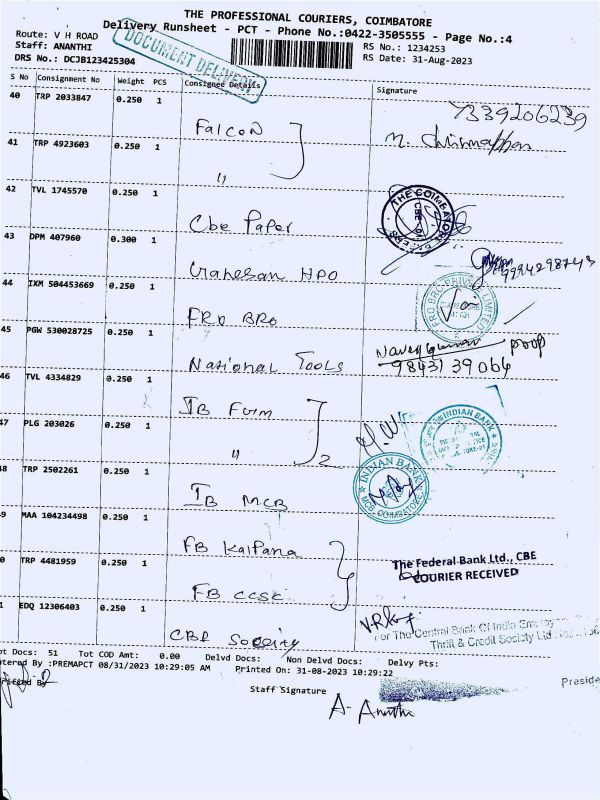 THE PROFESSIONAL COURIERS, COIMBATORE
Delivery Runsheet - PCT - Phone No.:0422-3505555 - Page No.:4
Route: V H ROAD
Staff: ANANTHI
DRS No.: DCJB123425304
DOCUMENT DELIVERY
RS No.: 1234253
RS Date: 31-Aug-2023
S No Consignment No Weight PCS Consignee Details Signature
40 TRP 2033847 0.250 1
Falcon
7339206239
41 TRP 4923603 0.250 1
"
42 TVL 1745570 0.250 1
Cbe Paper
THE COIMBATORE
43 DPM 407960 0.300 1
Ganesan HPO
9994298743
44 IXM 504453669 0.250 1
FRO BRO
FRO BRO PRIVATE LIMITED
45 PGW 530028725 0.250 1
National Tools
98431 39064
46 TVL 4334829 0.250 1
IB Firm
47 PLG 203026 0.250 1
" 2
INDIAN BANK
48 TRP 2502261 0.250 1
IB MCB
INDIAN BANK
MCB, COIMBATORE
9 MAA 104234498 0.250 1
FB Kalpana
The Federal Bank Ltd., CBE
COURIER RECEIVED
0 TRP 4481959 0.250 1
FB CCSC
1 EDQ 12306403 0.250 1
CBE Society
For The Central Bank Of India Employ
Thrift & Credit Society Ltd
ot Docs: 51 Tot COD Amt: 0.00 Delvd Docs: Non Delvd Docs: Delvy Pts:
ntered By :PREMAPCT 08/31/2023 10:29:05 AM Printed On: 31-08-2023 10:29:22
rified By
Staff Signature
Preside
A. Ananthi